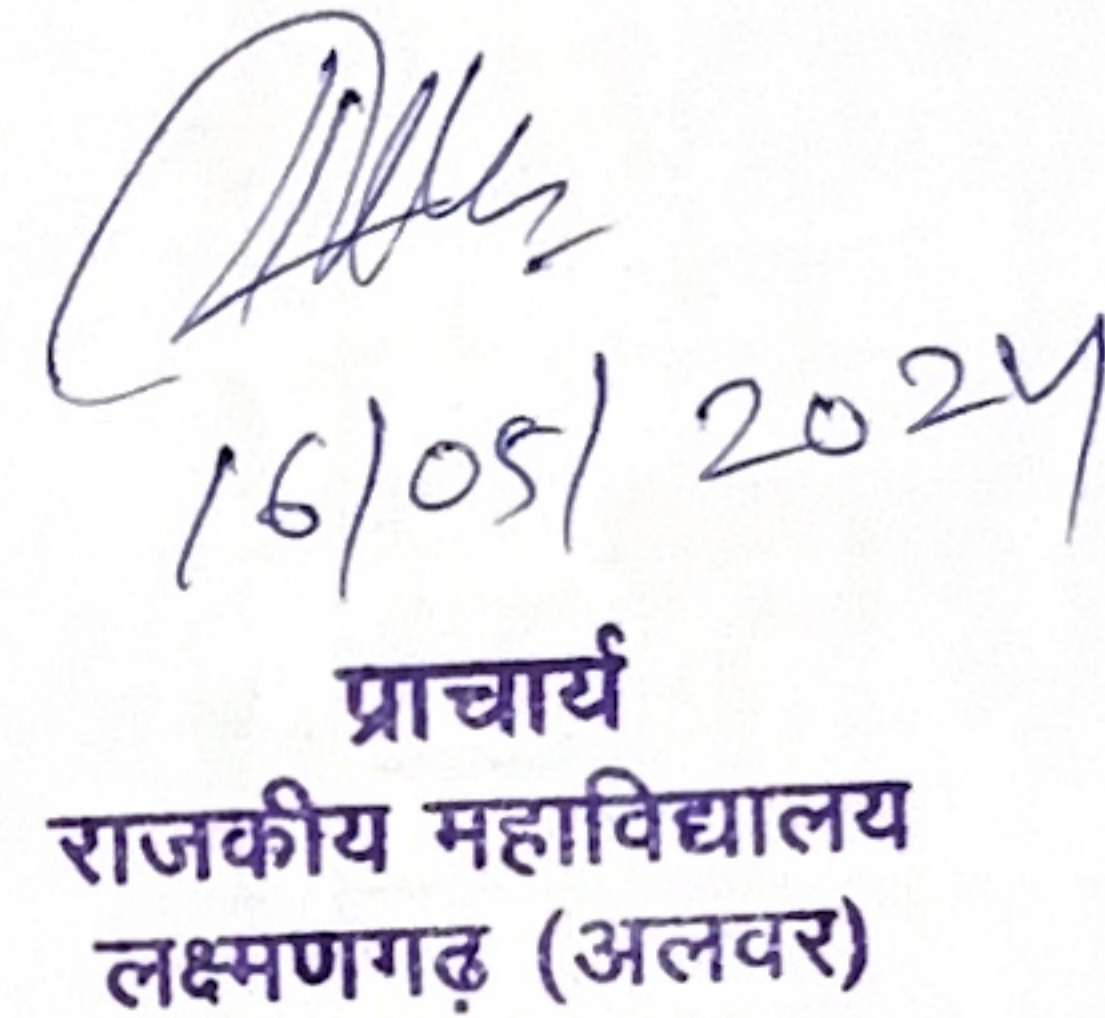 16/05/2024
प्राचार्य
राजकीय महाविद्यालय
लक्ष्मणगढ़ (अलवर)